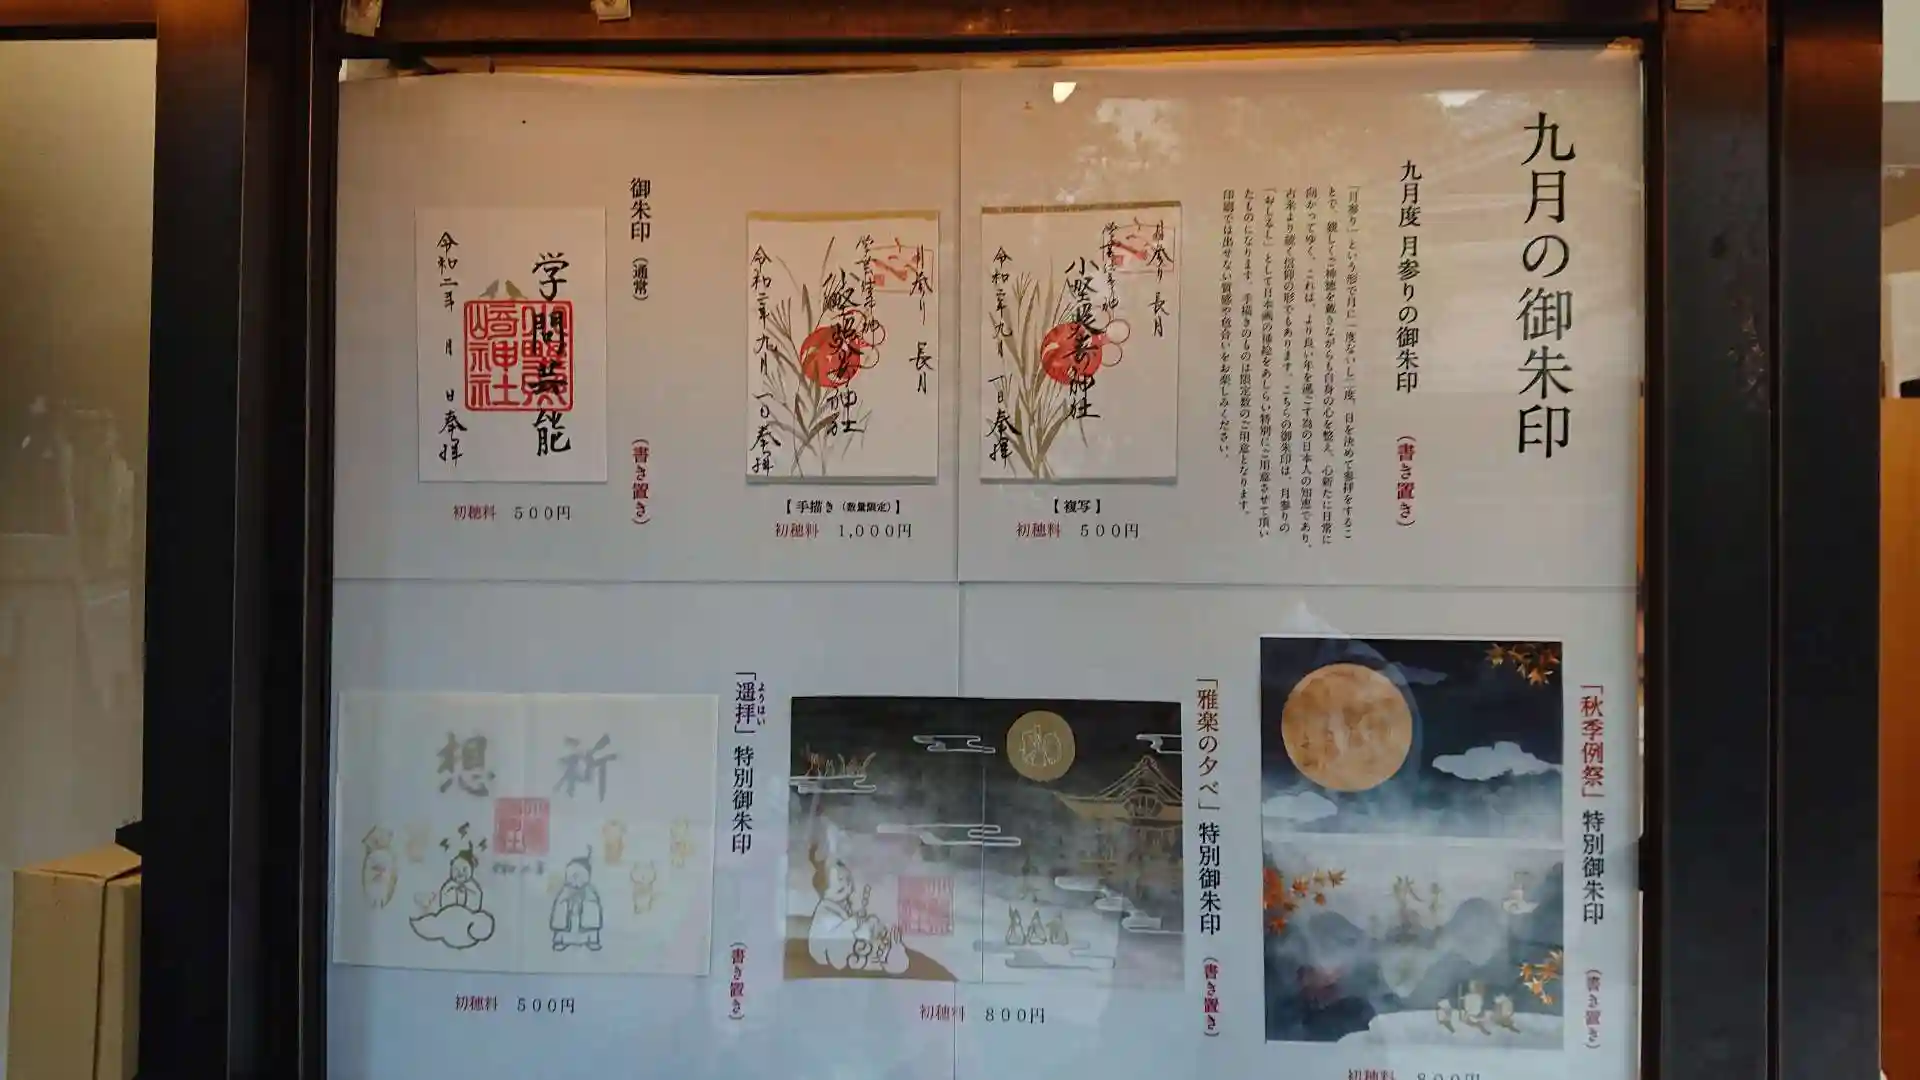 九月の御朱印
九月度 月参りの御朱印
(書き置き)
「月参り」という形で月に一度ないし二度、日を決めて参拝をするこ
とで、親しくご神徳を戴きながらも自身の心を整え、心新たに日常に
向かってゆく。これは、より良い年を過ごす為の日本人の知恵であり、
古来より続く信仰の形でもあります。こちらの御朱印は、月参りの
「おしるし」として日本画の挿絵をあしらい特別にご用意させて頂い
たものになります。手描きのものは限定数のご用意となります。
印刷では出せない質感や色合いをお楽しみください。
月参り 長月
学芸
神
小野照崎神社
令和二年九月一日奉拝
【複写】
初穂料 500円
月参り 長月
学芸
神
小野照崎神社
令和二年九月一日奉拝
【手描き(数量限定)】
初穂料 1,000円
御朱印(通常)
(書き置き)
学問芸能
小野照崎神社
令和二年 月 日奉拝
初穂料 500円
「秋季例祭」特別御朱印
(書き置き)
初穂料 800円
「雅楽の夕べ」特別御朱印
(書き置き)
初穂料 800円
「遥拝」特別御朱印
ようはい
(書き置き)
祈
想
初穂料 500円